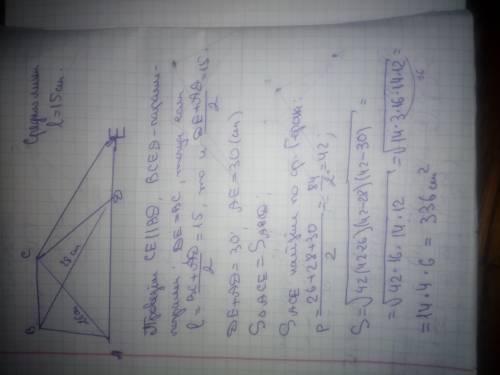 Средняя линия
l = 15 см.
B
C
A
D
E
Проведем CE || BD, BCED - паралле-
лограмм; DE = BC, тогда если
l = (BC + AD)/2 = 15, то и (DE + AD)/2 = 15.
DE + AD = 30; AE = 30 (см)
S△ACE = SABCD;
SACE найдём по ф. Герона:
P = (26 + 28 + 30)/2 = 84/2 = 42;
S = √42(42-26)(42-28)(42-30) =
= √42·16·14·12 = √14·3·16·14·12 =
36
= 14·4·6 = 336 см²